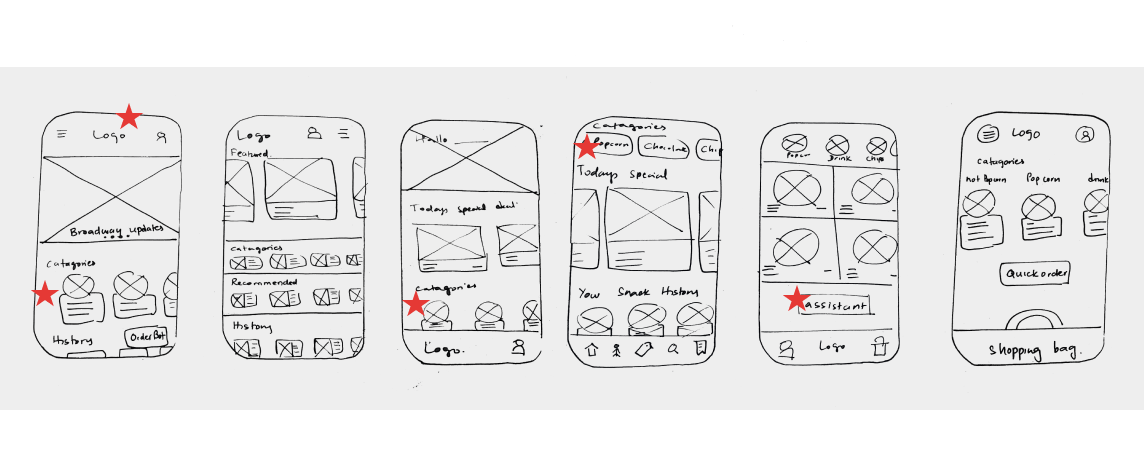 Logo
Broadway updates
Catagories
History
Order Bot
Logo
Featured
Catagories
Recommended
History
Hallo
Todays special
Catagories
Logo.
Catagories
Popcorn Chip
Todays Special
Snack History
Drink Chips
assistant
Logo
Logo
Catagories
hot Pop corn drink
Quick order
shopping bag.